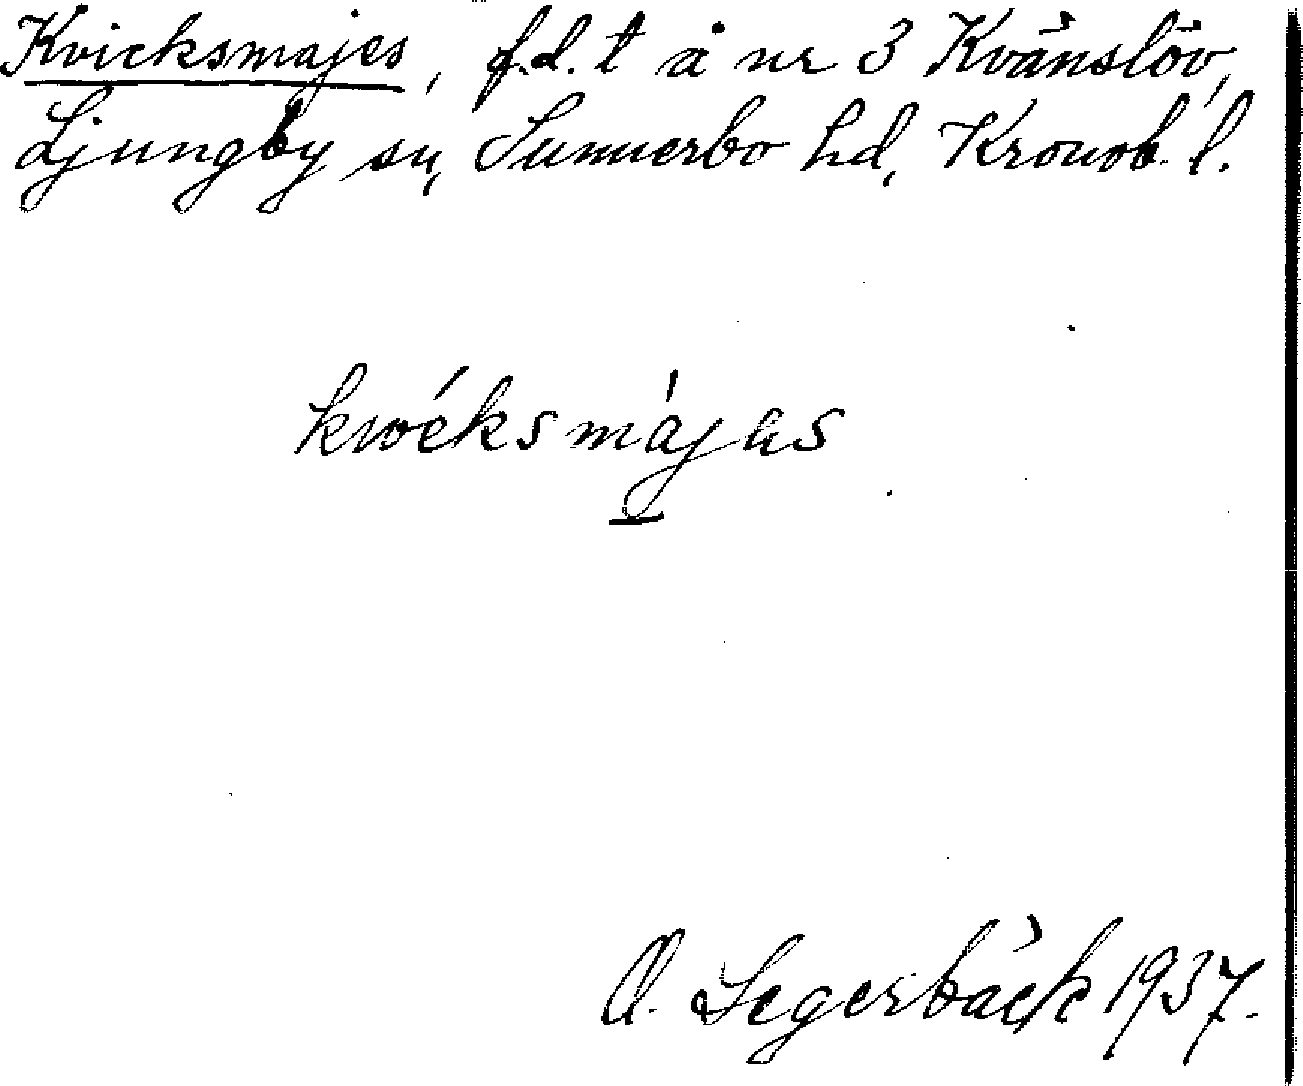 Kvicksmajes, f.d. t å nr 3 Kvänslöv,
Ljungby sn, Sunnerbo hd, Kronob. l.
kwéksmájas
O. Segerbäck 1937.